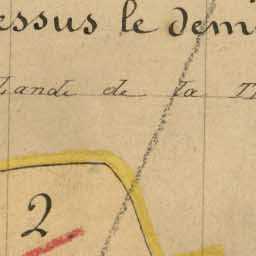 essus le dem
Lande de la T
2